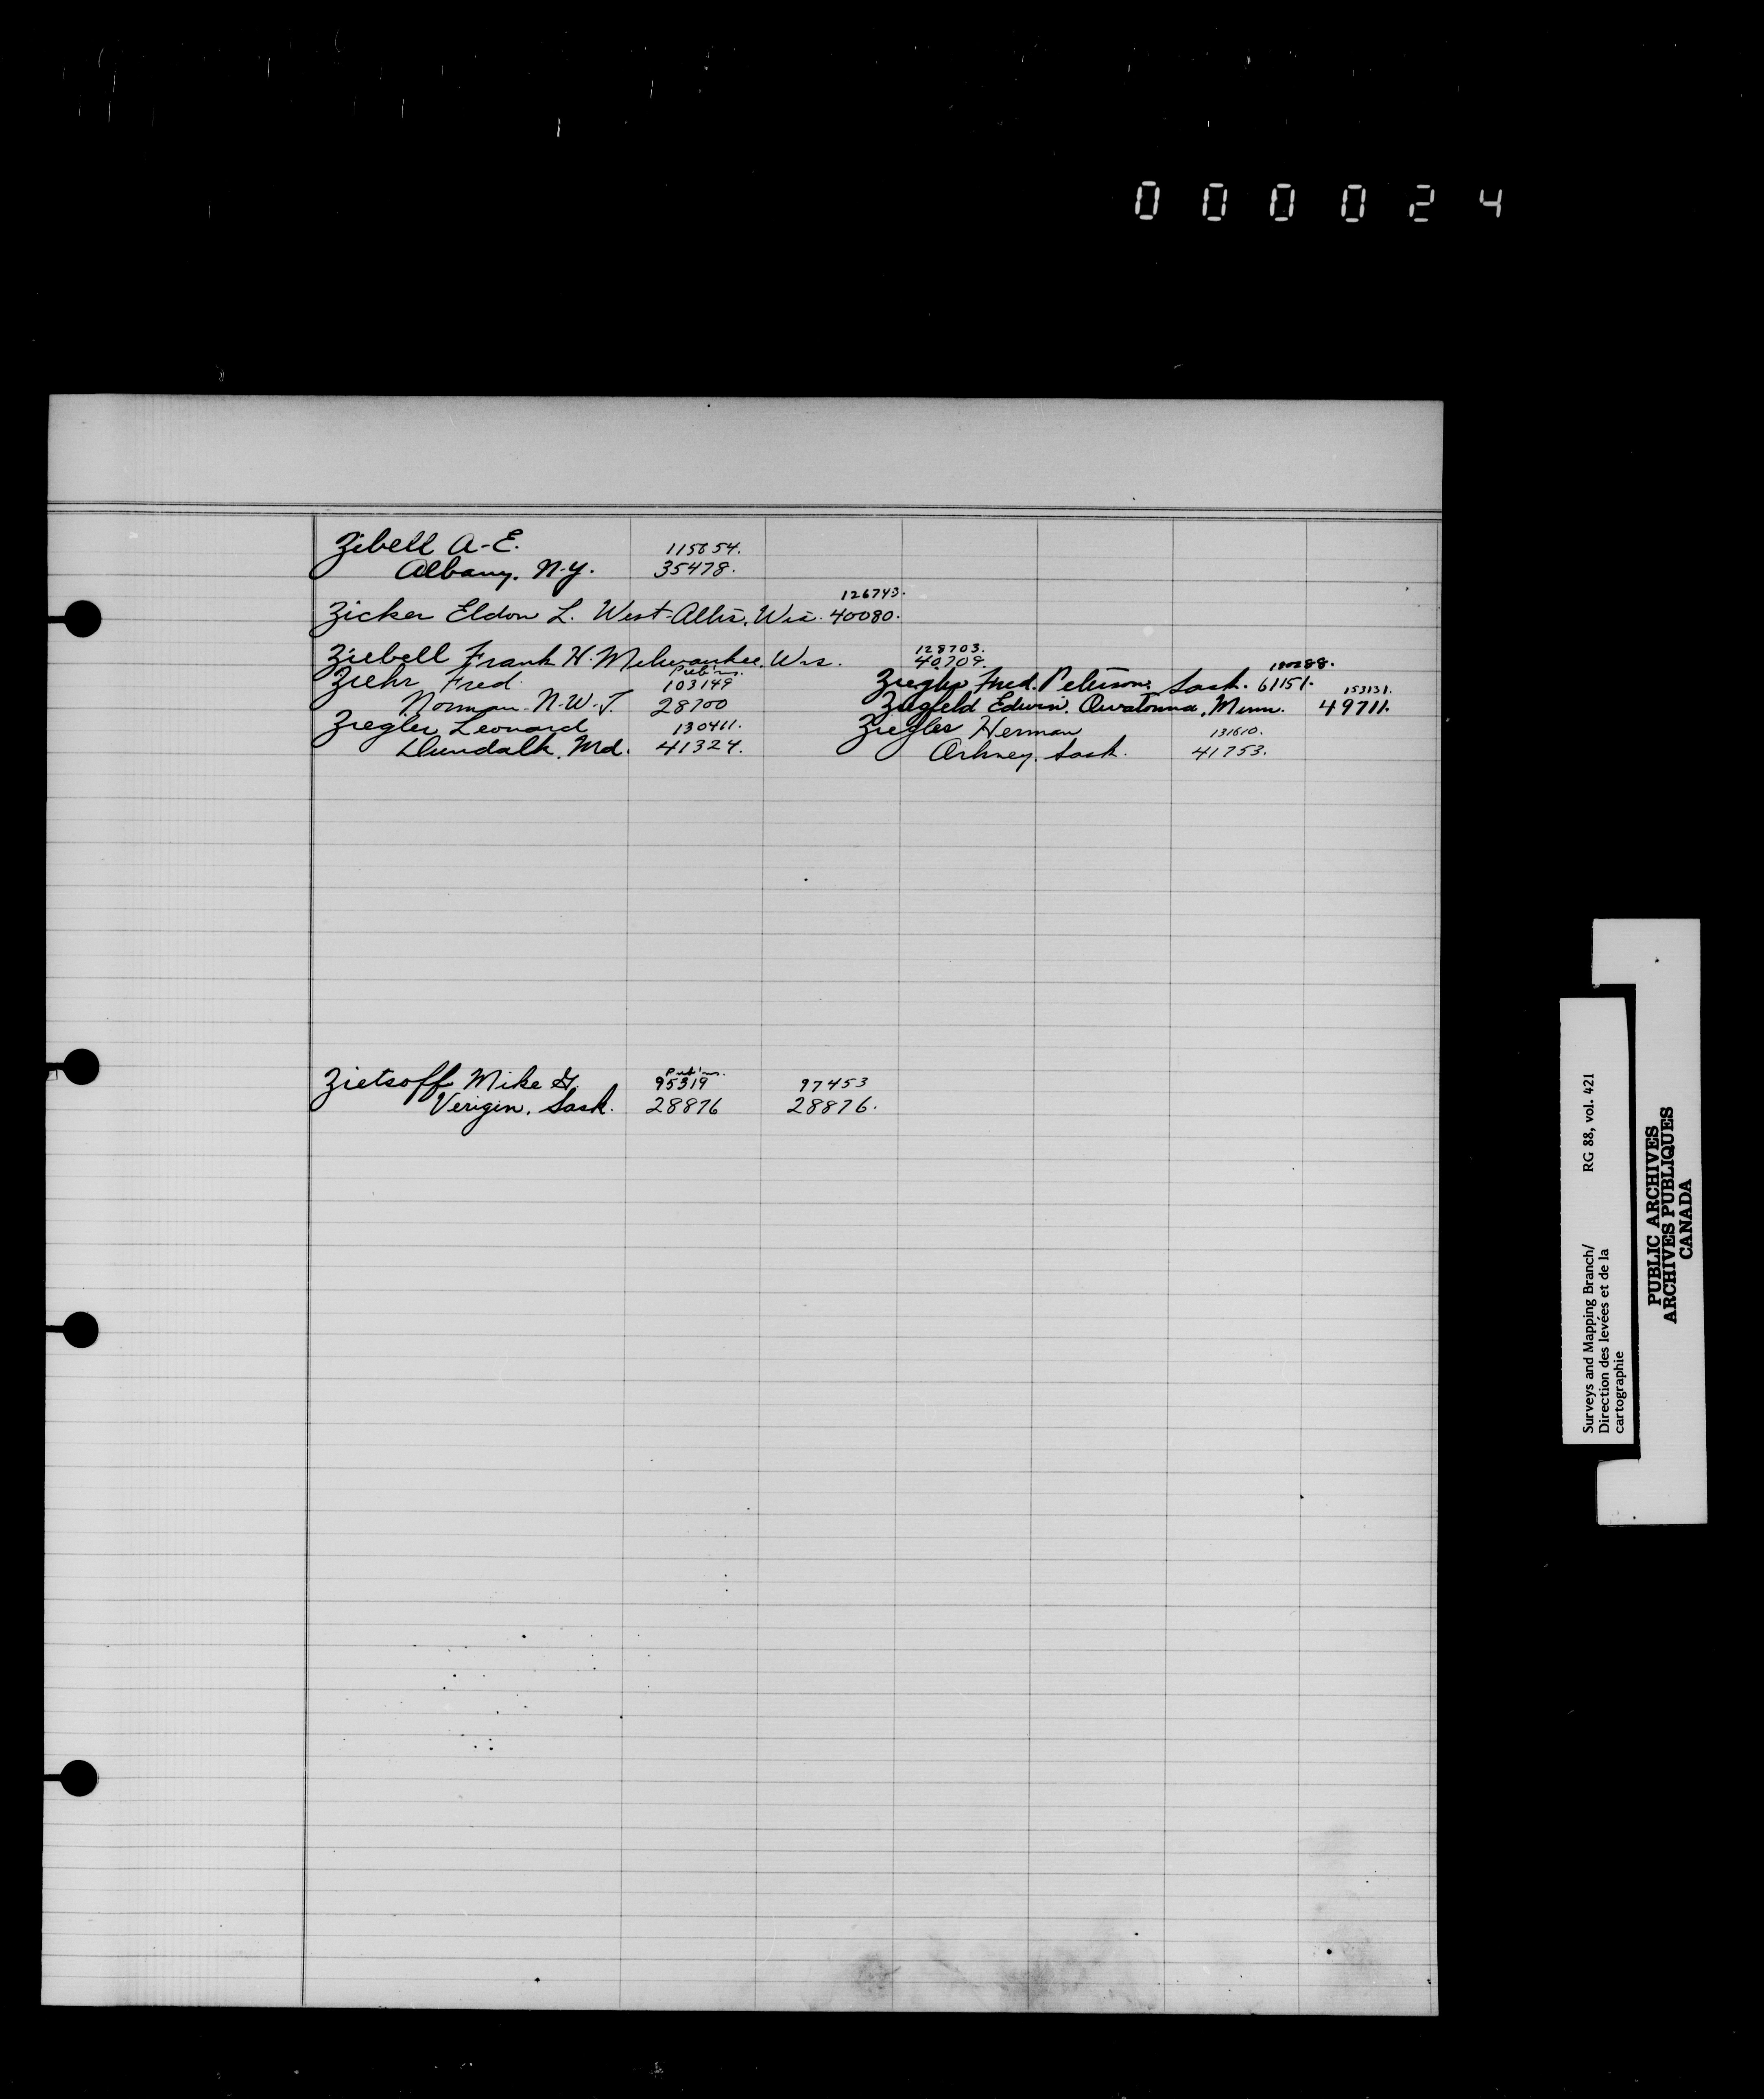 000024
Zibell A-E. 115654.
Albany, N-Y. 35478.
126743.
Zicker Eldon L. West-Allis, Wis. 40080.
Ziebell Frank H. Milwaukee, Wis. 128703.
40709.
Ziehr Fred. Pub'ns. 103149
Norman-N-W-T. 28700
Ziegler Leonard 130411.
Dundalk, Md. 41324.
Ziegler Fred. Peterson, Sask. 61151.
153131.
Ziegfeld Edwin. Owatonna, Minn. 49711.
Ziegler Herman 131610.
Arkney, Sask. 41753.
Zietsoff Mike G. Pub'ns. 95319 97453
Verigin, Sask. 28876 28876.
Surveys and Mapping Branch/ RG 88, vol. 421
Direction des levées et de la
cartographie
PUBLIC ARCHIVES
ARCHIVES PUBLIQUES
CANADA